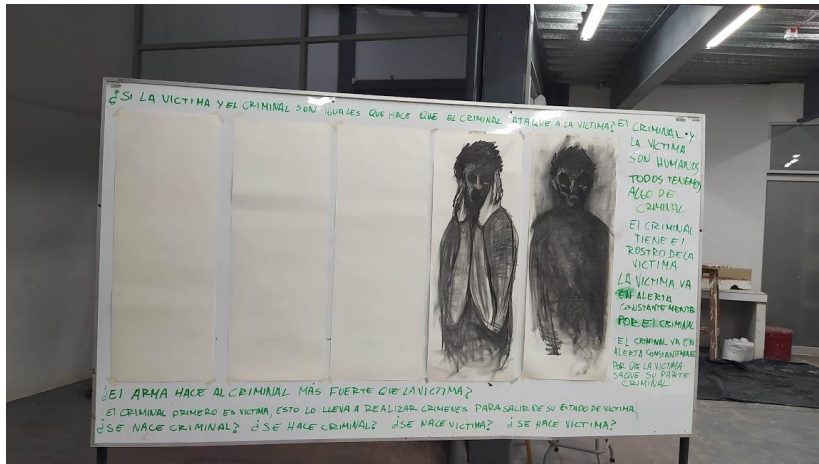 ¿SI LA VICTIMA Y EL CRIMINAL SON IGUALES QUE HACE QUE EL CRIMINAL ATAQUE A LA VICTIMA?
El CRIMINAL Y
LA VICTIMA
SON HUMANOS
TODOS TENEMOS
ALGO DE
CRIMINAL
El CRIMINAL
TIENE El
ROSTRO DE LA
VICTIMA
LA VICTIMA VA
EN ALERTA
CONSTANTEMENTE
POR El CRIMINAL
EL CRIMINAL VA EN
ALERTA CONSTANTEMENTE
POR QUE LA VICTIMA
SAQUE SU PARTE
CRIMINAL
¿El ARMA HACE AL CRIMINAL MÁS FUERTE QUE LA VICTIMA?
El CRIMINAL PRIMERO ES VICTIMA, ESTO LO LLEVA A REALIZAR CRIMENES PARA SALIR DE SU ESTADO DE VICTIMA
¿SE NACE CRIMINAL? ¿SE HACE CRIMINAL? ¿SE NACE VICTIMA? ¿SE HACE VICTIMA?